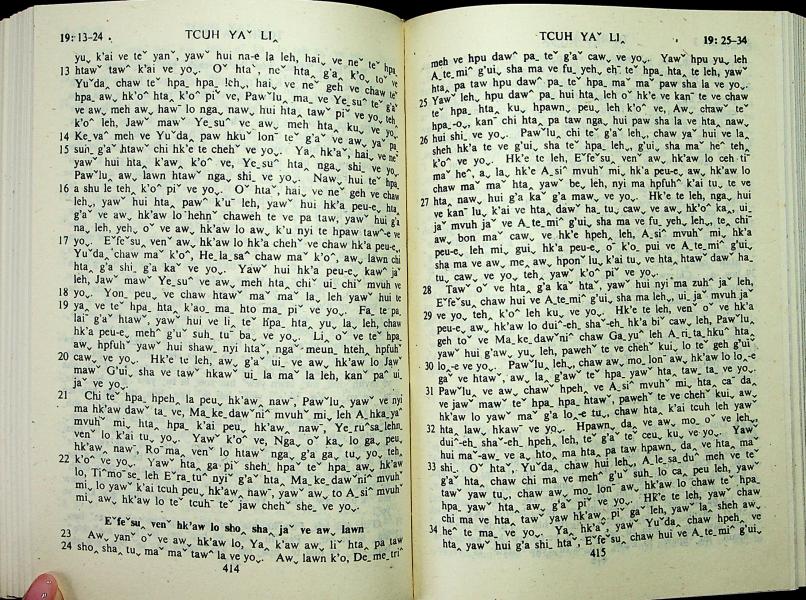 19: 13-24
TCUH YAˇ LI‸
yu˯ k'ai ve teˇ yanˇ, yawˇ hui na-e la leh, hai˯ ve neˇ teˇ hpa‸
13 htawˇ tawˆ k'ai ve yo˯. Oˇ htaˇ, neˇ hta‸ g'a‸ k'o˰ toˇ ve
Yuˇda‸ chaw teˇ hpa‸ hpa‸ leh‸, hai˯ ve neˇ geh ve chaw teˇ
hpa‸ aw˯ hk'oˆ hta‸ k'o‸ piˇ ve, Pawˇlu‸ ma˯ ve Ye˯suˇ teˇ g'aˇ
ve aw˯ meh aw˯ hawˇ lo nga˯ naw˯ hui hta‸ tawˇ piˇ ve yo˯ teh˯
k'oˇ leh, Jawˇ mawˇ Ye˯suˇ ve aw˯ meh hta‸ ku˯ ve yo˯.
14 Ke˯vaˆ meh ve Yuˇda‸ paw hkuˇ lonˉ teˇ g'aˇ ve aw˯ yaˇ pa‸
15 sun˯ g'aˇ htawˇ chi hk'e te chehˇ ve yo˯. Ya‸ hk'aˇ, hai˯ ve neˇ
yawˇ hui hta‸ k'aw‸ k'oˇ ve, Ye˯suˇ hta‸ nga˯ shi˯ ve yo˯.
Pawˇlu‸ aw˯ lawn htawˇ nga˯ shi˯ ve yo˯. Naw˯ hui teˇ hpa‸
16 a shu le teh‸ k'oˇ piˇ ve yo˯. Oˇ htaˇ, hai˯ ve neˇ geh ve chaw
leh˯, yawˇ hui hta‸ pawˆ k'uˉ leh, yawˇ hui hk'a peu-e‸ hta‸
g'aˇ ve aw˯ hk'aw lo hehnˇ chaweh te ve pa taw, yawˇ hui g'a
na˯ leh, yeh˯ oˇ ve aw˯ hk'aw lo aw˯ k'u nyi te hpaw tawˆ-e ve
17 yo˯. Eˇfeˇsu˯ venˇ aw˯ hk'aw lo hk'a chehˇ ve chaw hk'a peu-e‸
Yuˇda‸ chaw maˇ k'oˇ, He˯la˯saˆ chaw maˇ k'oˇ, aw˯ lawn chi
hta‸ g'a shi‸ g'a kaˇ ve yo˯. Yawˇ hui hk'a peu-e‸ kawˆ jaˇ
leh, Jawˇ mawˇ Ye˯suˇ ve aw˯ meh hta‸ chiˇ ui˯ chi˯ mvuh ve
18 yo˯. Yon˯ peu˯ ve chaw htawˇ maˇ maˇ la˯ leh yawˇ hui te
19 ya‸ ve teˇ hpa‸ hta‸ k'ao˯ ma˯ hto ma˯ piˇ ve yo˯. Fa˯ te pa‸
lai˯ g'aˇ htawˇ yawˇ hui ve li˯ teˇ hpa‸ hta‸ yu˯ la˯ leh, chaw
hk'a peu-e‸ mehˇ g'uˇ suh˯ tuˇ ba˯ ve yo˯. Li˯ oˇ ve teˇ hpa‸
aw˯ hpfuhˇ yawˇ hui shaw˯ nyi htaˇ, ngaˇ meun˯ hteh˯ hpfuhˇ
20 caw˯ ve yo˯. Hk'e te leh, aw˯ g'aˇ ui˯ ve aw˯ hk'aw lo Jawˇ
mawˇ G'ui˯ sha ve tawˇ hkawˇ ui˯ la maˇ la leh, kanˇ paˇ ui˯
jaˇ ve yo˯.
21 Chi teˇ hpa‸ hpeh‸ la peu˯ hk'aw˯ nawˇ, Pawˇlu‸ yawˇ ve nyi
ma hk'aw dawˇ ta‸ ve, Ma˯ke˯dawˇniˆ mvuhˇ mi‸ leh A‸hka˯yaˆ
mvuhˇ mi‸ hta‸ hpa‸ k'ai peu˯ hk'aw˯ nawˇ, Ye˯ruˇsa˯lehn˯
venˇ lo k'ai tu˯ yo˯. Yawˇ k'oˇ ve, Nga˯ oˇ ka˯ lo ga˯ peu˯
hk'aw˯ nawˇ, Roˉma˯ venˇ lo htawˇ nga˯ g'a ga˯ tu˯ yo˯ teh˯
22 k'oˇ ve yo˯. Yawˇ hta‸ ga piˇ sheh‸ hpaˇ teˇ hpa‸ aw˯ hk'aw
lo, Tiˆmoˉse˯ leh Eˇra˯tuˇ nyiˇ g'aˇ hta‸ Ma˯ke˯dawˇniˆ mvuhˇ
mi‸ lo yawˇ k'ai tcuh peu˯ hk'aw˯ nawˇ, yawˇ aw˯ to A˯siˆ mvuhˇ
mi‸ aw˯ hk'aw lo teˇ tcuhˉ teˇ jaw chehˇ she˯ ve yo˯.
Eˇfeˇsu˯ venˇ hk'aw lo sho‸ sha‸ jaˇ ve aw˯ lawn
23 Aw˯ yanˇ oˇ ve aw˯ hk'aw lo, Ya‸ k'aw aw˯ liˇ hta‸ pa taw
24 sho‸ sha‸ tu˯ maˇ maˇ tawˆ la ve yo˯. Aw˯ lawn k'o, De˯me˯triˆ
414
TCUH YAˇ LI‸
19: 25-34
meh ve hpu dawˆ pa‸ teˇ g'aˇ caw˯ ve yo˯. Yawˇ hpu yu˯ leh
A˯te˯miˆ g'ui˯ sha ma ve fu˯ yeh˯ ehˉ teˇ hpa‸ hta‸ te leh, yawˇ
hta‸ pa taw hpu dawˆ pa‸ teˇ hpa‸ maˇ maˇ paw sha la ve yo˯.
25 Yawˇ leh, hpu dawˆ pa‸ hui hta‸ leh oˇ hk'e ve kanˇ te ve chaw
teˇ hpa‸ hta‸ ku˯ hpawn˯ peu˯ leh, k'oˇ ve, Aw˯ chawˇ teˇ
hpa‸-o‸, kanˇ chi hta‸ pa taw nga˯ hui paw sha la ve hta‸ naw˯
26 hui shi˯ ve yo˯. Pawˇlu‸ chi teˇ g'aˇ leh˯, chaw yaˇ hui ve la˯
sheh hk'a te ve g'ui˯ sha teˇ hpa‸ leh˯, g'ui˯ sha maˇ heˇ teh˯
k'oˇ ve yo˯. Hk'e te leh, Eˇfeˇsu˯ venˇ aw˯ hk'aw lo ceh-tiˇ
maˇ heˇ, a˯ la˯ hk'e A˯siˆ mvuhˇ mi‸ hk'a peu-e‸ aw˯ hk'aw lo
chaw maˇ maˇ hta‸ yawˇ be˯ leh, nyi ma hpfuhˇ k'ai tu˯ te ve
27 hta‸ naw˯ hui g'a kaˇ g'a maw˯ ve yo˯. Hk'e te leh, nga˯ hui
ve kanˇ lu˯ k'ai ve hta‸ dawˇ ha˯ tu˯ caw˯ ve aw˯ hk'oˆ ka˯ ui˯
jaˇ mvuh jaˇ ve A˯te˯miˆ g'ui˯ sha ma ve fu˯ yeh˯ leh˯, te‸ chiˉ
aw˯ bon maˇ caw˯ ve hk'e hpeh‸ leh, A˯siˆ mvuhˇ mi‸ hk'a
peu-e‸ leh mi‸ gui‸ hk'a peu-e‸ oˇ k'o˯ pui ve A˯te˯miˆ g'ui˯
sha ma ve aw˯ me‸ aw˯ hponˇ lu˯ k'ai tu˯ ve hta‸ htawˇ dawˇ ha˯
tu˯ caw˯ ve yo˯ teh˯ yawˇ k'oˇ piˇ ve yo˯.
28 Tawˇ oˇ ve hta‸ g'a kaˇ hta‸ yawˇ hui nyiˇ ma zuhˆ jaˇ leh,
Eˇfeˇsu˯ chaw hui ve A˯te˯miˆ g'ui˯ sha ma leh˯, ui˯ jaˇ mvuh jaˇ
29 ve yo˯ teh˯ k'oˇ leh ku˯ ve yo˯. Hk'e te leh, venˇ oˇ ve hk'a
peu-e‸ aw˯ hk'aw lo duiˆ-eh˯ shaˇ-eh˯ hk'a biˇ caw˯ leh, Pawˇlu‸
geh toˇ ve Ma˯ke˯dawˇniˆ chaw Ga˯yuˇ leh A˯ri˯ta˯hkuˇ hta‸
yawˇ hui g'aw˯ yu˯ leh, pawehˇ te ve chehˇ kui˯ lo teˇ geh g'uiˇ
30 lo‸-e ve yo˯. Pawˇlu‸ leh˯, chaw aw˯ mo˯ lonˇ aw˯ hk'aw lo lo‸-e
gaˇ ve htawˇ, aw˯ la‸ g'aˇ teˇ hpa‸ yawˇ hta‸ taw˯ ta‸ ve yo˯.
31 Pawˇlu‸ ve aw˯ chawˇ hpeh‸ ve A˯siˆ mvuhˇ mi‸ hta‸ caˉ da‸
ve jawˇ mawˇ teˇ hpa‸ hpa‸ htawˇ, pawehˇ te ve chehˇ kui˯ aw˯
hk'aw lo yawˇ maˇ g'a lo‸-e tu˯, chaw hta‸ k'ai tcuh leh yawˇ
32 hta‸ law˯ hkawˇ ve yo˯. Hpawn˯ da‸ ve aw˯ mo˯ oˇ ve leh˯,
duiˆ-eh˯ shaˇ-eh˯ hpeh‸ leh, teˇ g'aˇ teˇ ceu˯ ku˯ ve yo˯. Yawˇ
hui maˇ-aw˯ ve a˯ hto˯ ma hta‸ pa taw hpawn˯ da‸ ve hta‸ maˇ
33 shi˯. Oˇ htaˇ, Yuˇda‸ chaw hui leh˯, A˯le˯sa˯duˆ meh ve teˇ
g'aˇ hta‸ chaw chi ma ve mehˇ g'uˇ suh˯ lo ca‸ peu leh, yawˇ
taw yaw tu˯, chaw aw˯ mo˯ lonˇ aw˯ hk'aw lo chaw teˇ hpa‸
hpa‸ yawˇ hta‸ aw˯ k'oˇ piˇ ve yo˯. Hk'e te leh, yawˇ chaw
chi ma ve hta‸ taw yaw hk'aw˯ piˇ gaˇ leh, yawˇ la‸ sheh aw˯
34 heˆ te ma˯ ve yo˯. Ya‸ hk'aˇ, yawˇ Yuˇda‸ chaw hpeh‸ ve
hta‸ yawˇ hui g'a shi˯ htaˇ, Eˇfeˇsu˯ chaw hui ve A˯te˯miˆ g'ui˯
415